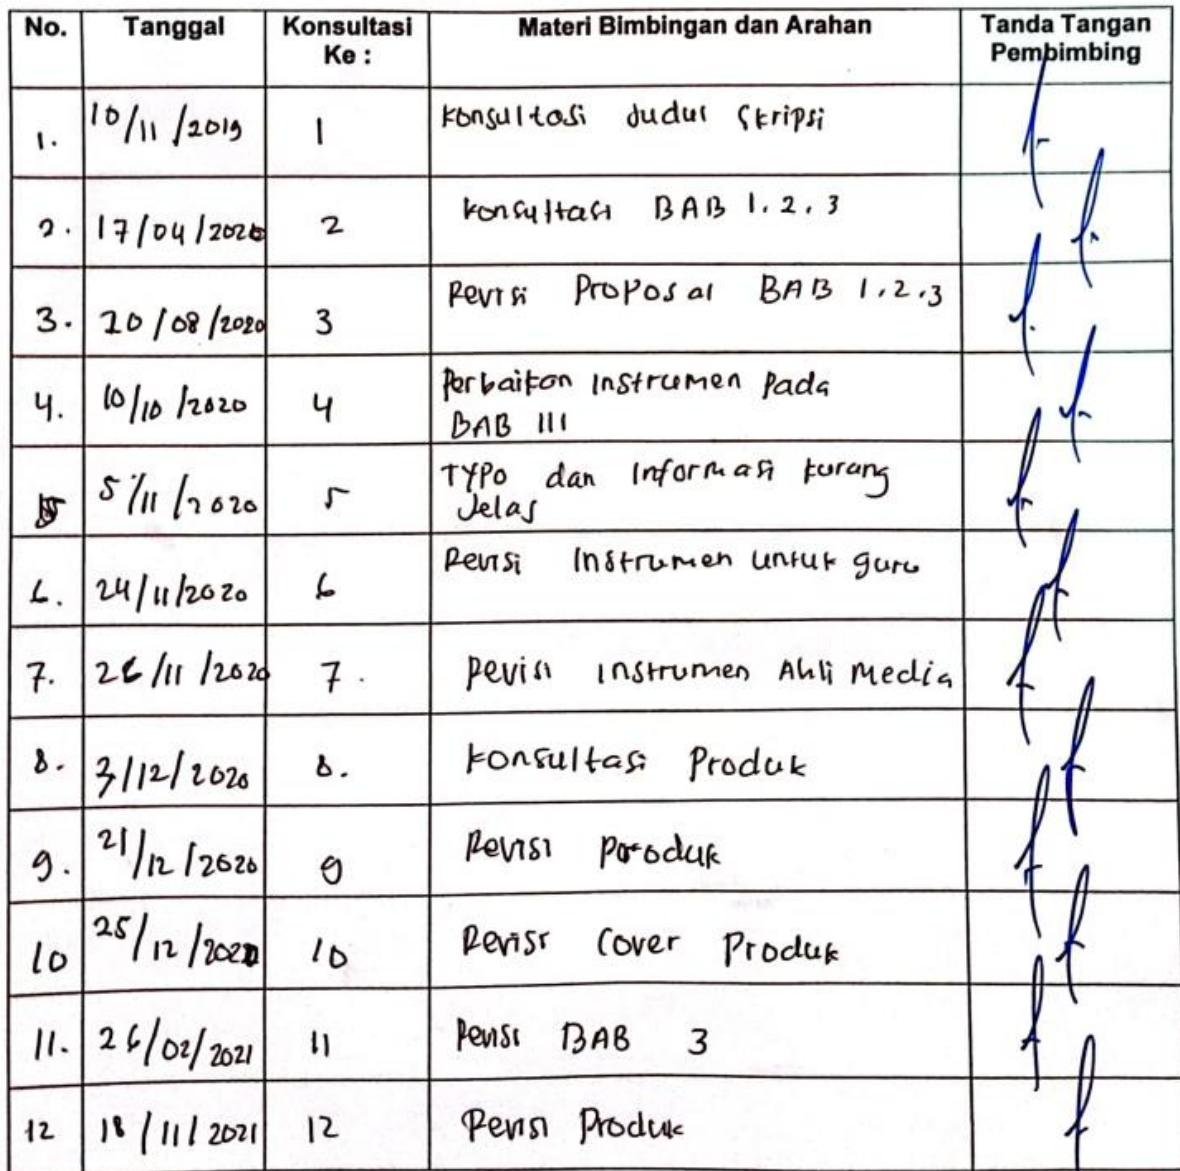 No. Tanggal Konsultasi Ke : Materi Bimbingan dan Arahan Tanda Tangan Pembimbing
1. 10/11/2019 1 Konsultasi Judul Skripsi
2. 17/04/2020 2 Konsultasi BAB 1.2.3
3. 20/08/2020 3 Revisi Proposal BAB 1.2.3
4. 10/10/2020 4 Perbaikan Instrumen Pada
BAB III
5 5/11/2020 5 Typo dan Informasi kurang
Jelas
6. 24/11/2020 6 Revisi Instrumen untuk guru
7. 26/11/2020 7. Revisi Instrumen Ahli Media
8. 3/12/2020 8. Konsultasi Produk
9. 21/12/2020 9 Revisi Produk
10 25/12/2020 10 Revisi Cover Produk
11. 26/02/2021 11 Revisi BAB 3
12 18/11/2021 12 Revisi Produk